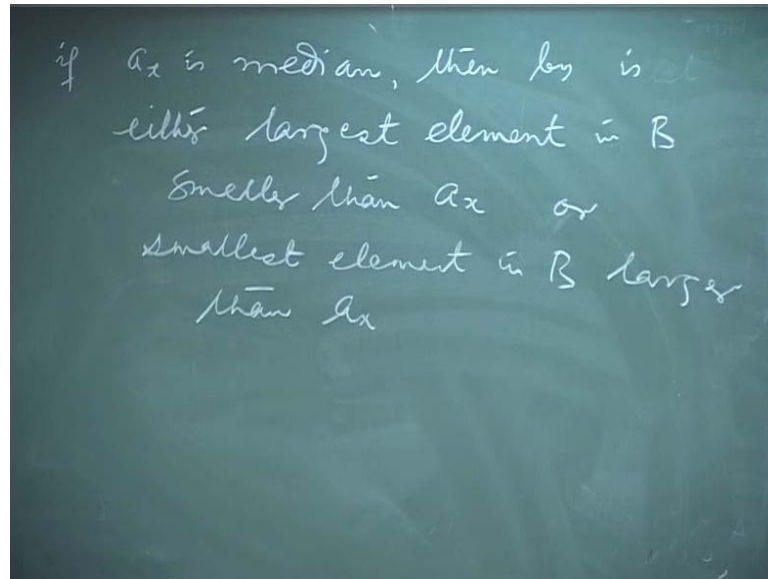 if a_x is median, then by is
either largest element in B
smaller than a_x or
smallest element in B larger
than a_x